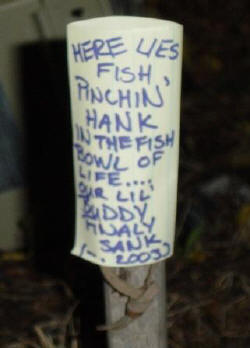 HERE LIES
FISH
PINCHIN'
HANK
IN THE FISH
BOWL OF
LIFE....
OUR LIL'
BUDDY
FINALY
SANK
(-. 2003)